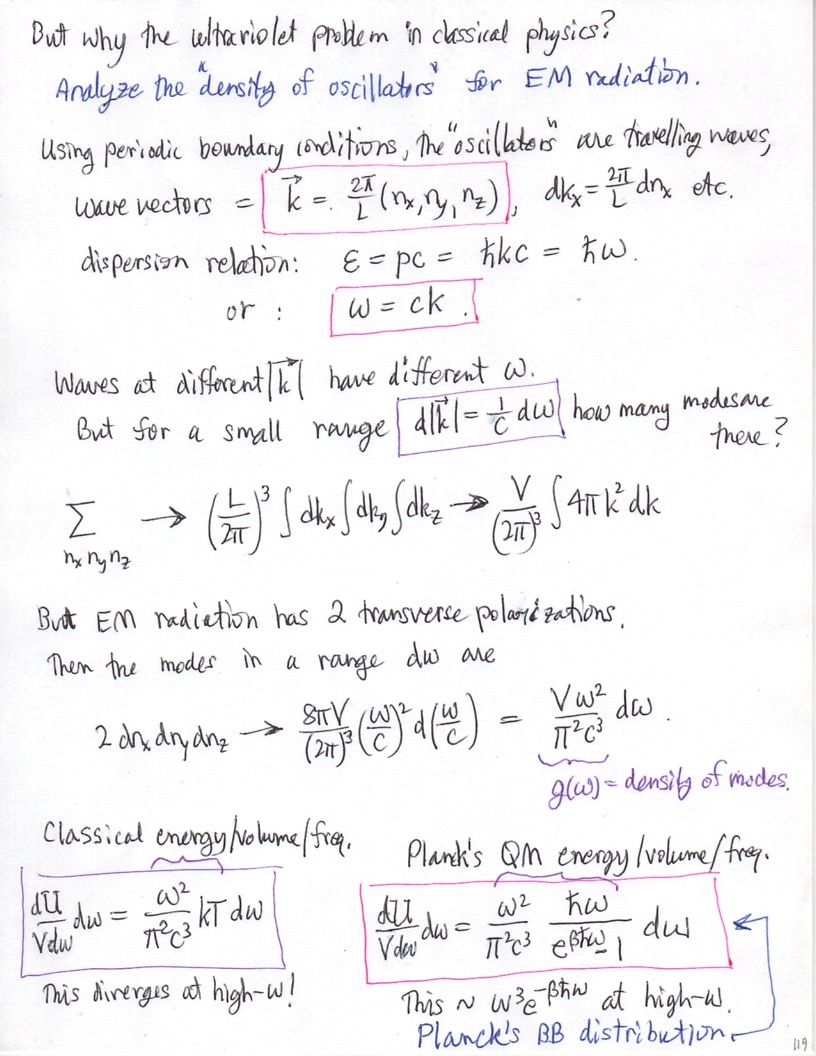 But why the ultraviolet problem in classical physics?
Analyze the "density of oscillators" for EM radiation.
Using periodic boundary conditions, the "oscillators" are travelling waves,
wave vectors = k⃗ = 2π/L (nx, ny, nz), dkx = 2π/L dnx etc.
dispersion relation: ε = pc = ħkc = ħω.
or : ω = ck.
Waves at different |k⃗| have different ω.
But for a small range d|k⃗| = 1/c dω how many modes are
there?
∑ nx ny nz → (L/2π)³ ∫dkx ∫dky ∫dkz → V/(2π)³ ∫4πk²dk
But EM radiation has 2 transverse polarizations.
Then the modes in a range dω are
2 dnx dny dnz → 8πV/(2π)³ (ω/c)² d(ω/c) = Vω²/π²c³ dω.
g(ω) = density of modes.
Classical energy/volume/freq.
dU/Vdω dω = ω²/π²c³ kT dω
This diverges at high-ω!
Planck's QM energy/volume/freq.
dU/Vdω dω = ω²/π²c³ ħω/e^βħω-1 dω
This ~ ω³e^-βħω at high-ω.
Planck's BB distribution.
119